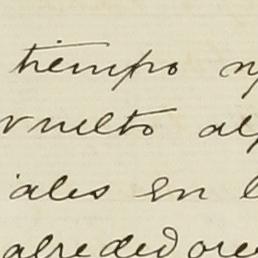 tiempo
vuelto al
iales en
alrededores